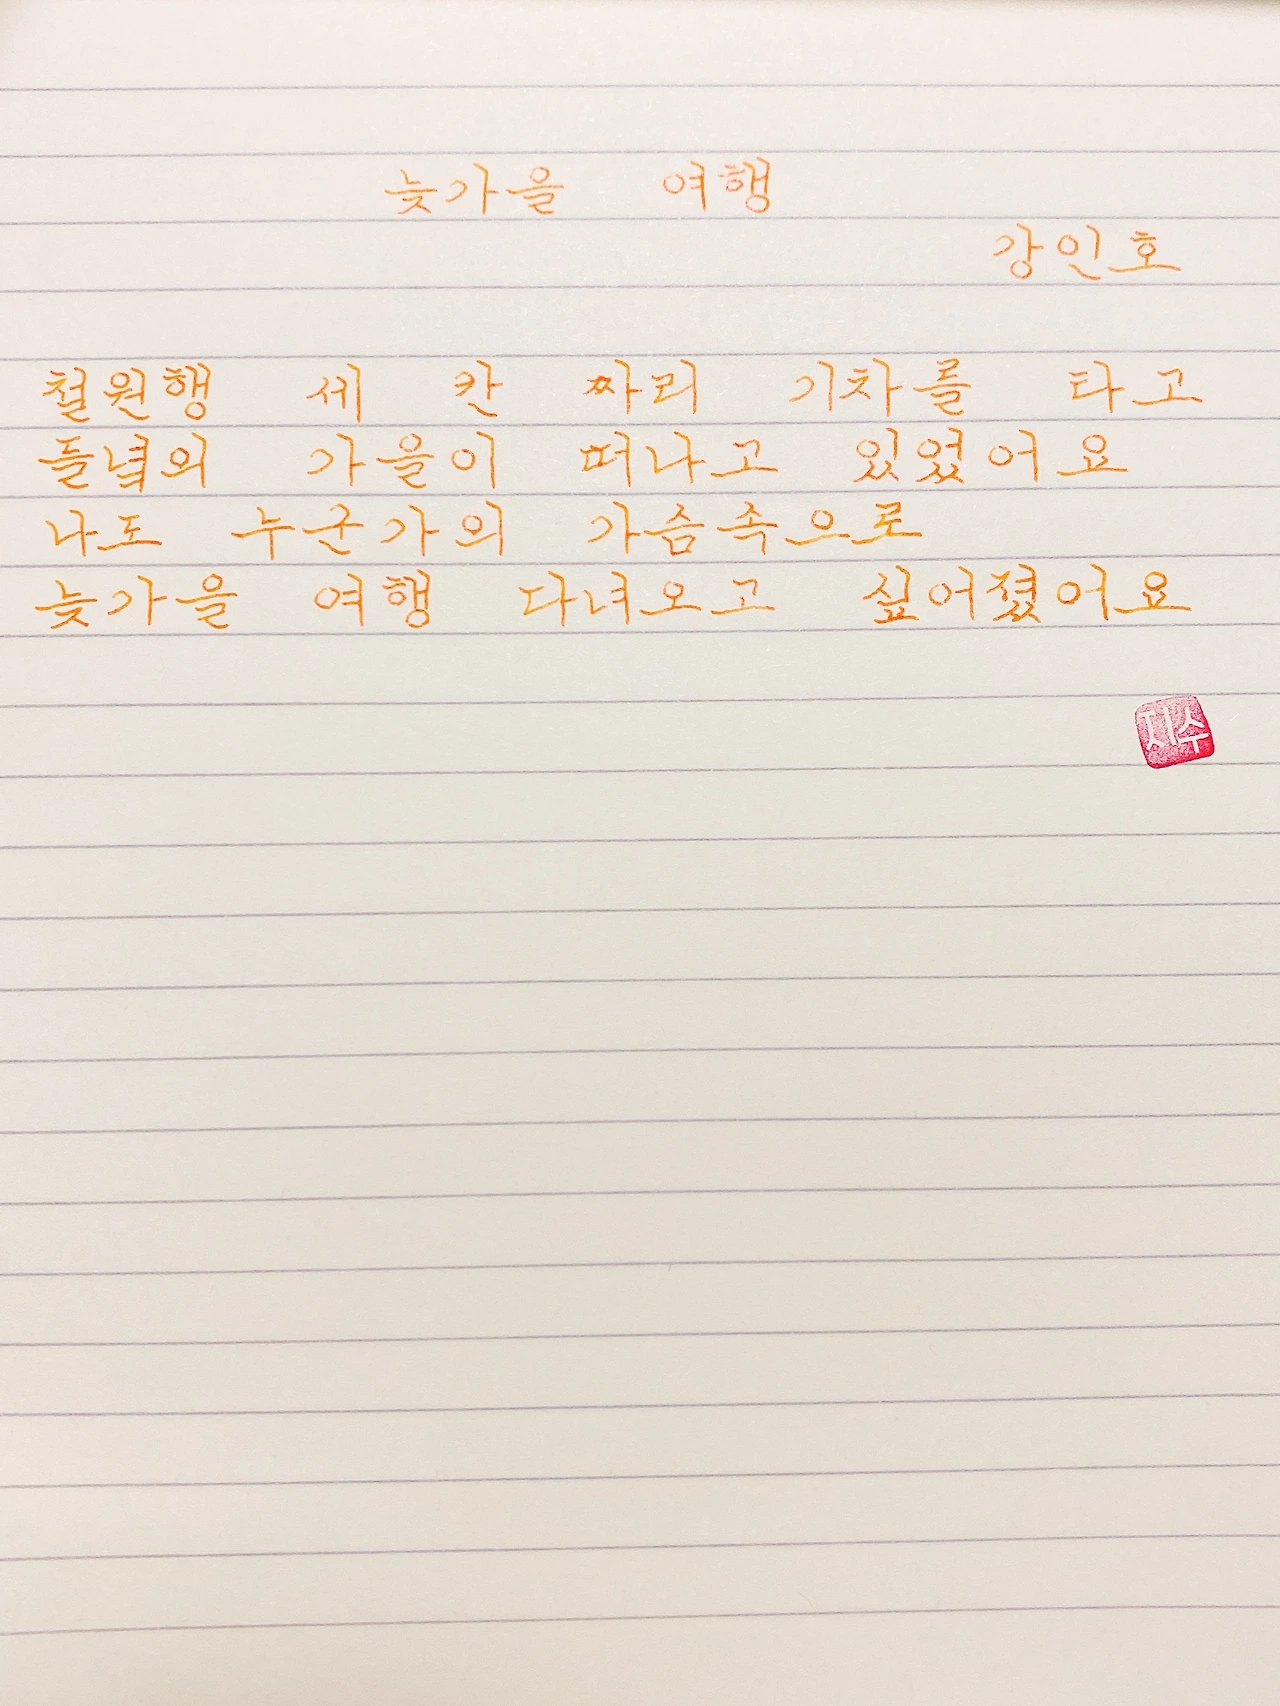 늦가을 여행
강인호
철원행 세 칸 짜리 기차를 타고
들녘의 가을이 떠나고 있었어요
나도 누군가의 가슴속으로
늦가을 여행 다녀오고 싶어졌어요
지수